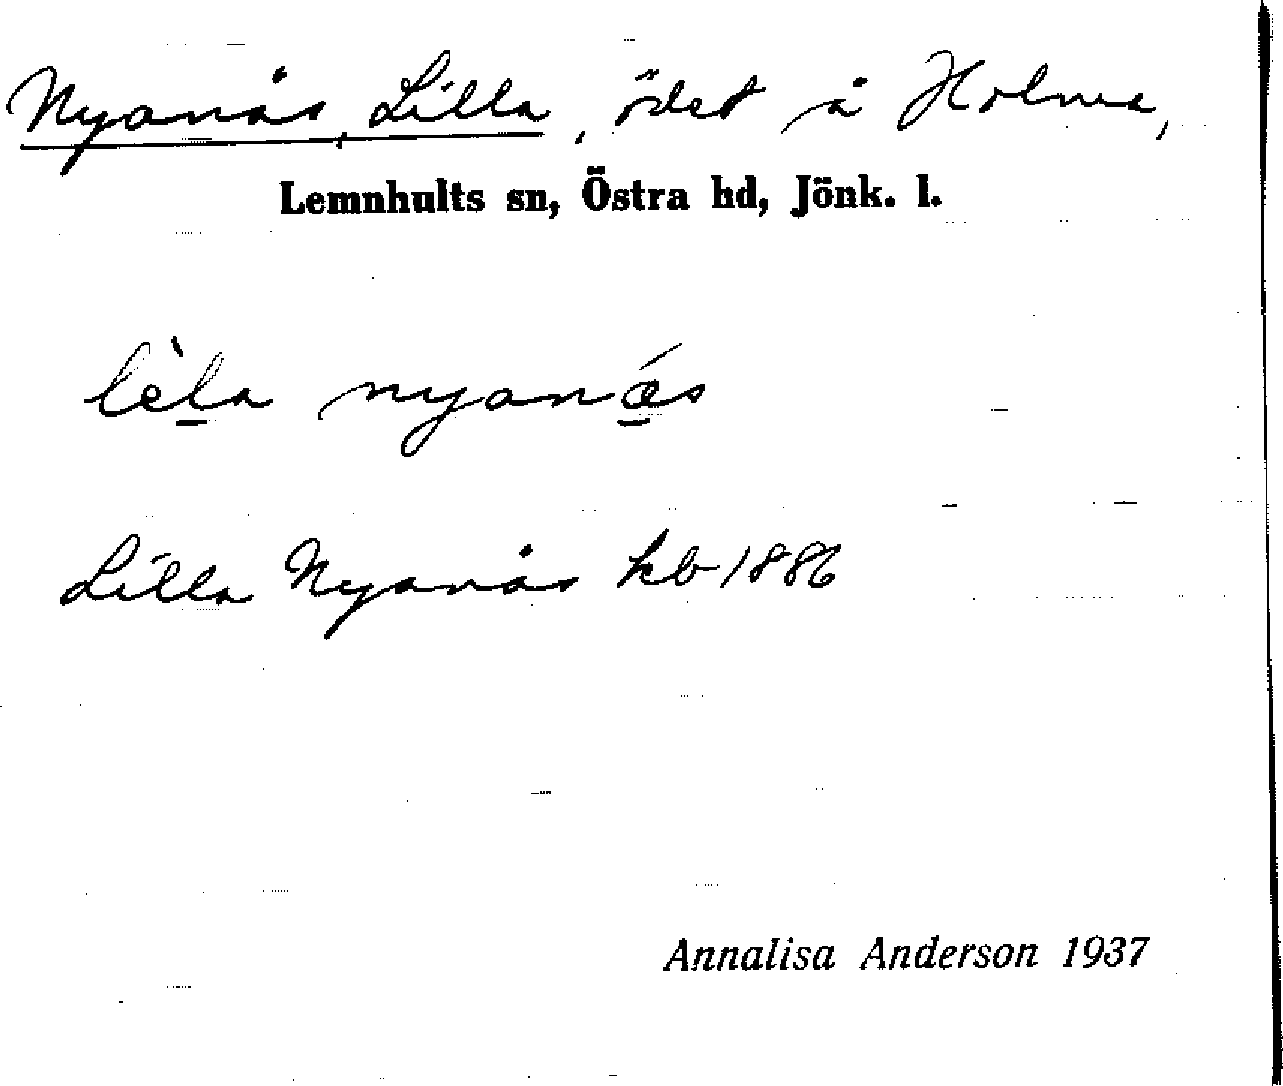 Nyanäs, Lilla, ödet å Holma,
Lemnhults sn, Östra hd, Jönk. l.
lèla nyanǽs
Lilla Nyanäs hb 1886
Annalisa Anderson 1937